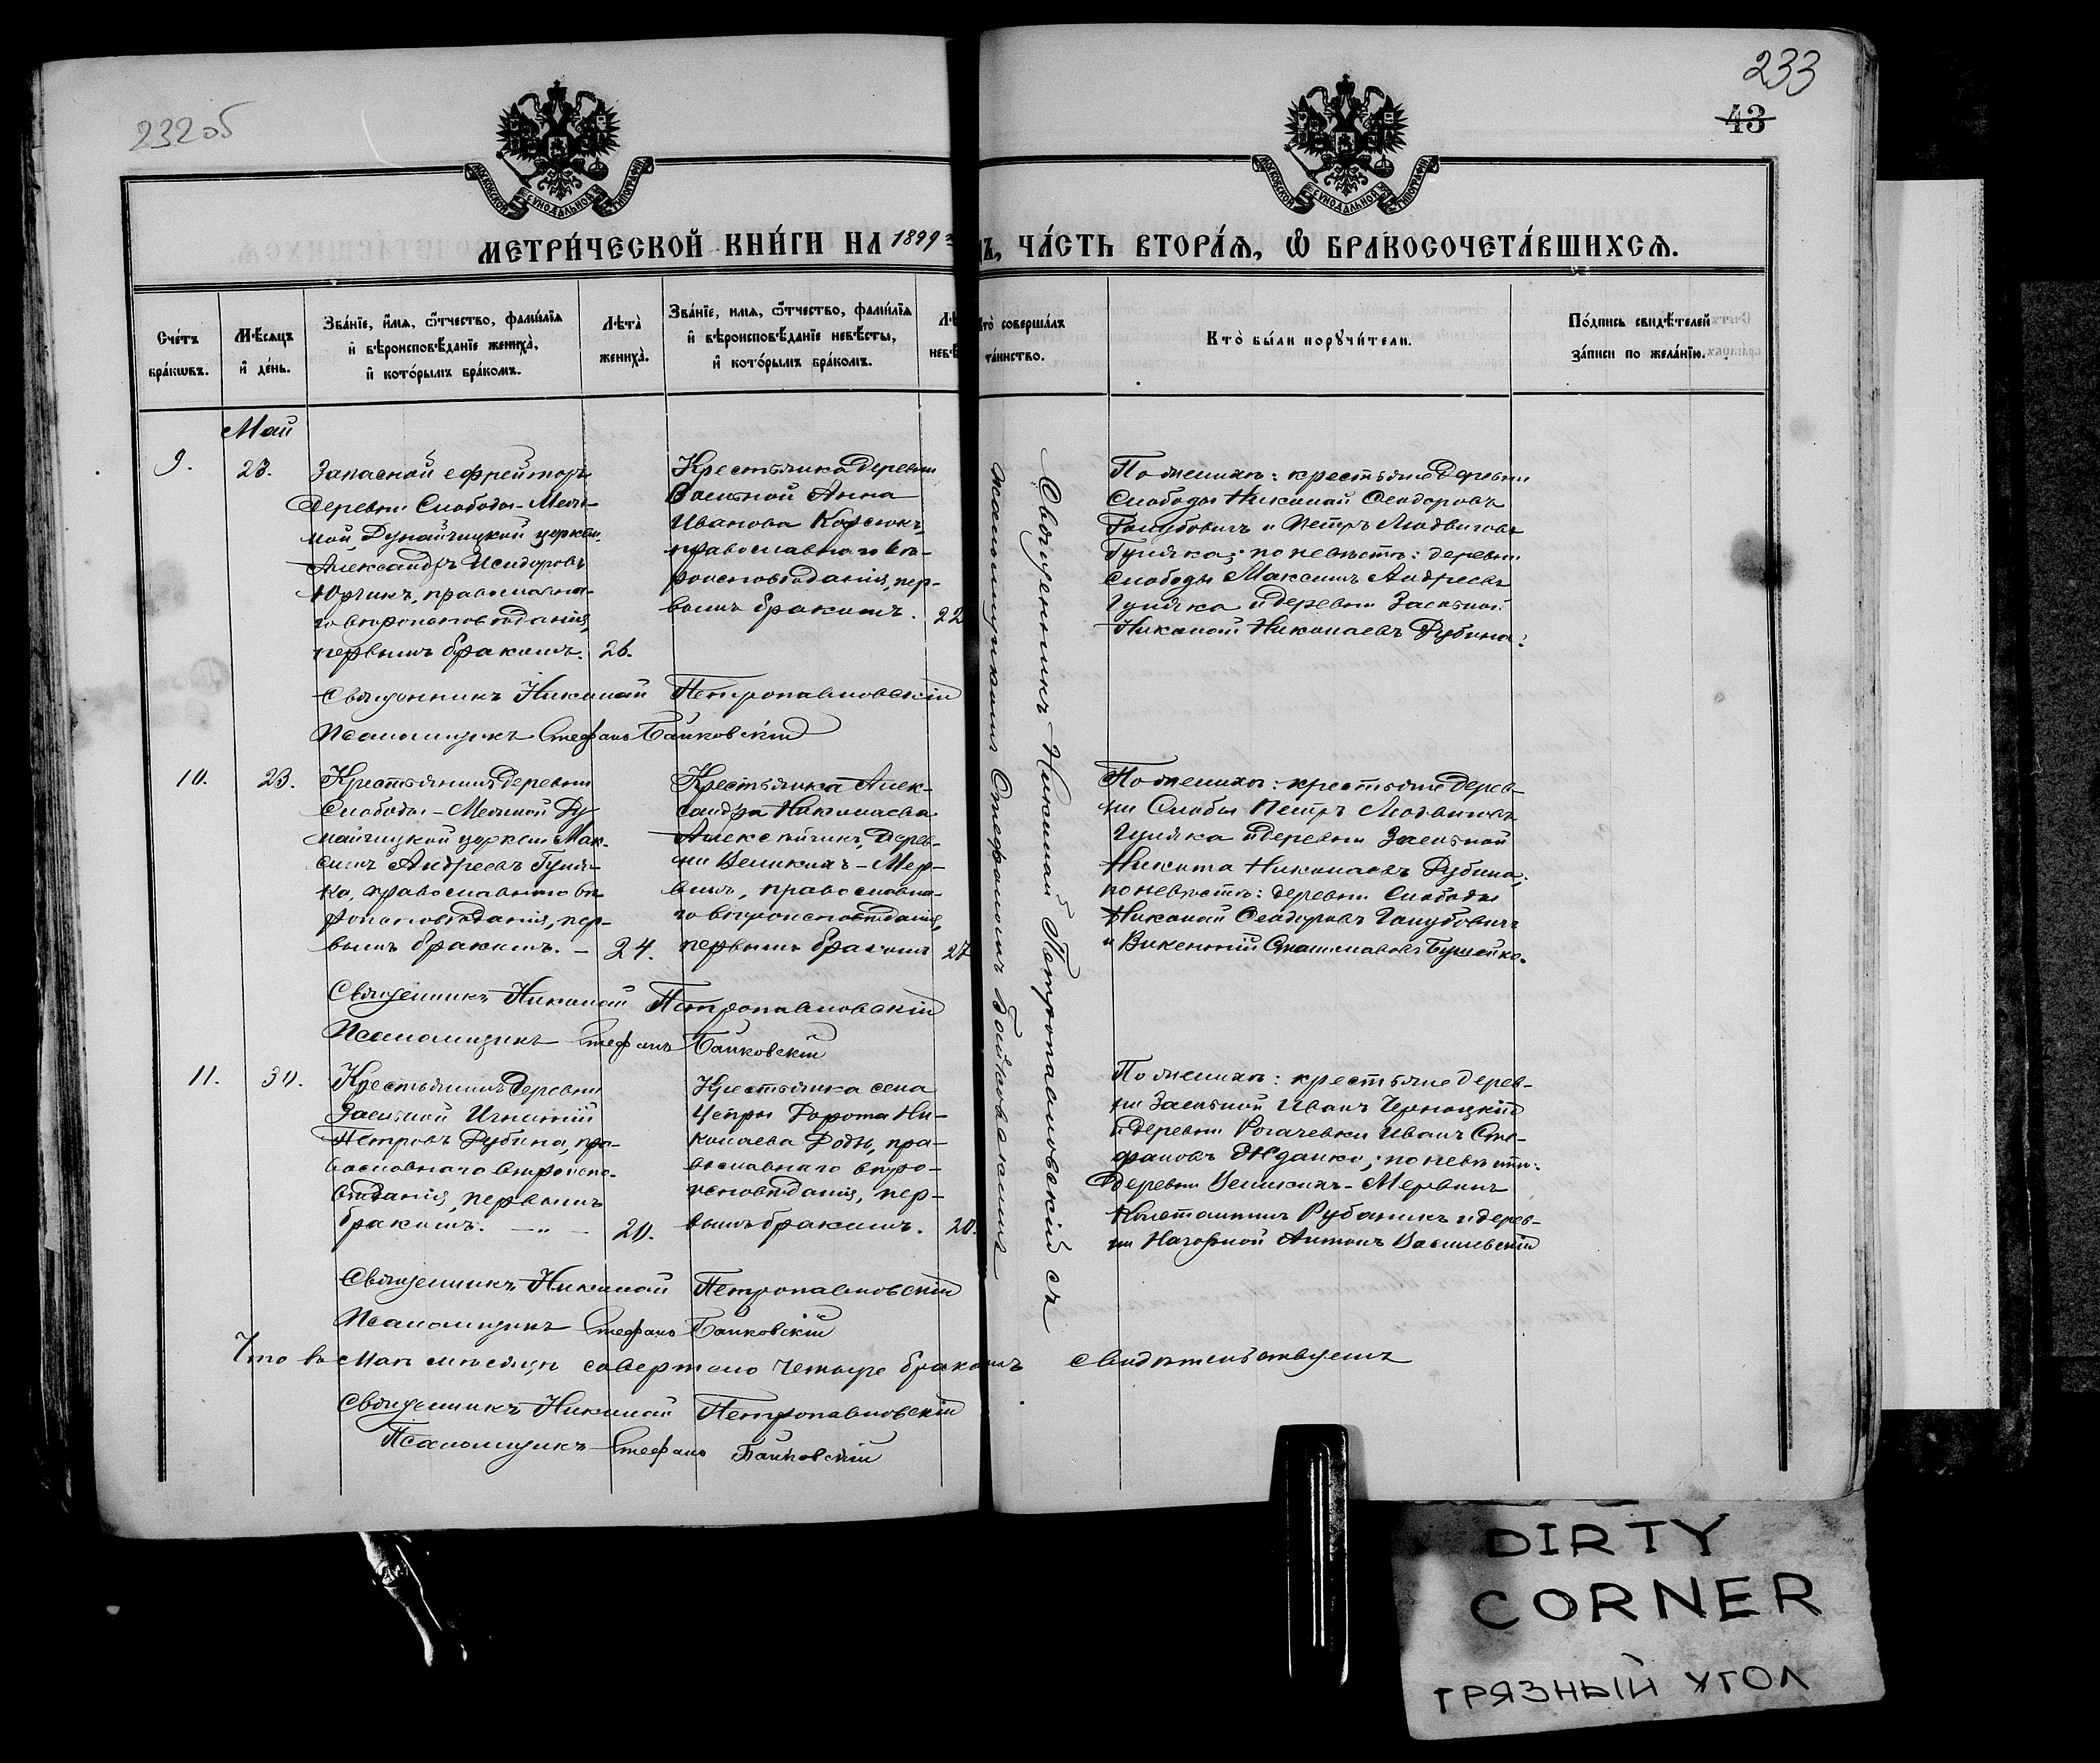 232 об
233
43
МОСКОВСКОЙ СУНОДАЛЬНОЙ ТИПОГРАФІИ
МОСКОВСКОЙ СУНОДАЛЬНОЙ ТИПОГРАФІИ
МЕТРИ́ЧЕСКОЙ КНИ́ГИ НА 1899
Ъ, ЧА́СТЬ ВТОРА́Я, Ѽ БРАКОСОЧЕТА́ВШИХСЯ.
Сче́тъ
бра́кωвъ.
Мѣ́сяцъ
и҆ де́нь.
Зва́нїе, и҆́мя, ѻ҆́тчество, фами́лїя
и҆ вѣроисповѣ́данїе жениха̀,
и҆ кото́рымъ бра́комъ.
Лѣта̀
жениха̀.
Зва́нїе, и҆́мя, ѻ҆́тчество, фами́лїя
и҆ вѣроисповѣ́данїе невѣ́сты,
и҆ кото́рымъ бра́комъ.
Лѣ
невѣ
Кто̀ соверша́лъ
та́инство.
Кто̀ бы́ли порꙋчи́тели.
По́дпись свидѣ́телей
за́писи по жела́нїю.
Май
9.
23.
Запасной ефрейторъ
деревни Слободы-Мель-
ной, Дунайчицкой церкви,
Александръ Исидоровъ
Юрчикъ, православна-
го вѣроисповѣданія,
первымъ бракомъ.
26.
Крестьянка деревни
Засѣтной Анна
Иванова Корсюкъ,
православнаго вѣ-
роисповѣданія, пер-
вымъ бракомъ.
22
По женихѣ: крестьяне деревни
Слободы Николай Ѳеодоровъ
Голубовичъ и Петръ Людвиговъ
Гуляка; по невѣстѣ: деревни
Слободы Максимъ Андреевъ
Гуляка и деревни Засѣтной
Николай Николаевъ Рубина.
Священникъ Николай Петропавловскій
Псаломщикъ Стефанъ Байковскій
10.
23.
Крестьянинъ деревни
Слободы-Мельной Ду
найчицкой церкви Мак-
симъ Андреевъ Гуля-
ка, православнаго вѣ
роисповѣданія, пер-
вымъ бракомъ. —
24.
Крестьянка Алек-
сандра Николаева
Алексѣйчикъ, дерев-
ни Великихъ-Мер-
винъ, православна-
го вѣроисповѣданія,
первымъ бракомъ
27
По женихѣ: крестьяне дерев-
ни Слобды Петръ Людвиговъ
Гуляка и деревни Засѣтной
Никита Николаевъ Рубина;
по невѣстѣ: деревни Слободы
Николай Ѳеодоровъ Голубовичъ
и Викентій Станиславовъ
Священникъ Николай Петропавловскій
Псаломщикъ Стефанъ Байковскій
11.
30.
Крестьянинъ деревни
Засѣтной Игнатій
Петровъ Рубина, пра-
вославнаго вѣроиспо-
вѣданія, первымъ
бракомъ. — „ —
20.
Крестьянка села
Цепры Дорота Ни-
колаева пра-
вославнаго вѣро-
исповѣданія, пер-
вымъ бракомъ.
20.
По женихѣ: крестьяне дерев-
ни Засѣтной Иванъ
и деревни Рогачевки Иванъ Сте-
фановъ Жданко; по невѣстѣ:
деревни Великихъ-Мервинъ
Константинъ Рубаникъ и дерев-
ни Нагорной Антонъ Василевскій
Священникъ Николай Петропавловскій
Псаломщикъ Стефанъ Байковскій
Священникъ Николай Петропавловскій съ
псаломщикомъ Стефаномъ Байковскимъ
Что въ Маѣ мѣсяцѣ совершено четыре свидѣтельствуемъ
Священникъ Николай Петропавловскій
Псаломщикъ Стефанъ Байковскій
DIRTY
CORNER
ГРЯЗНЫЙ УГОЛ